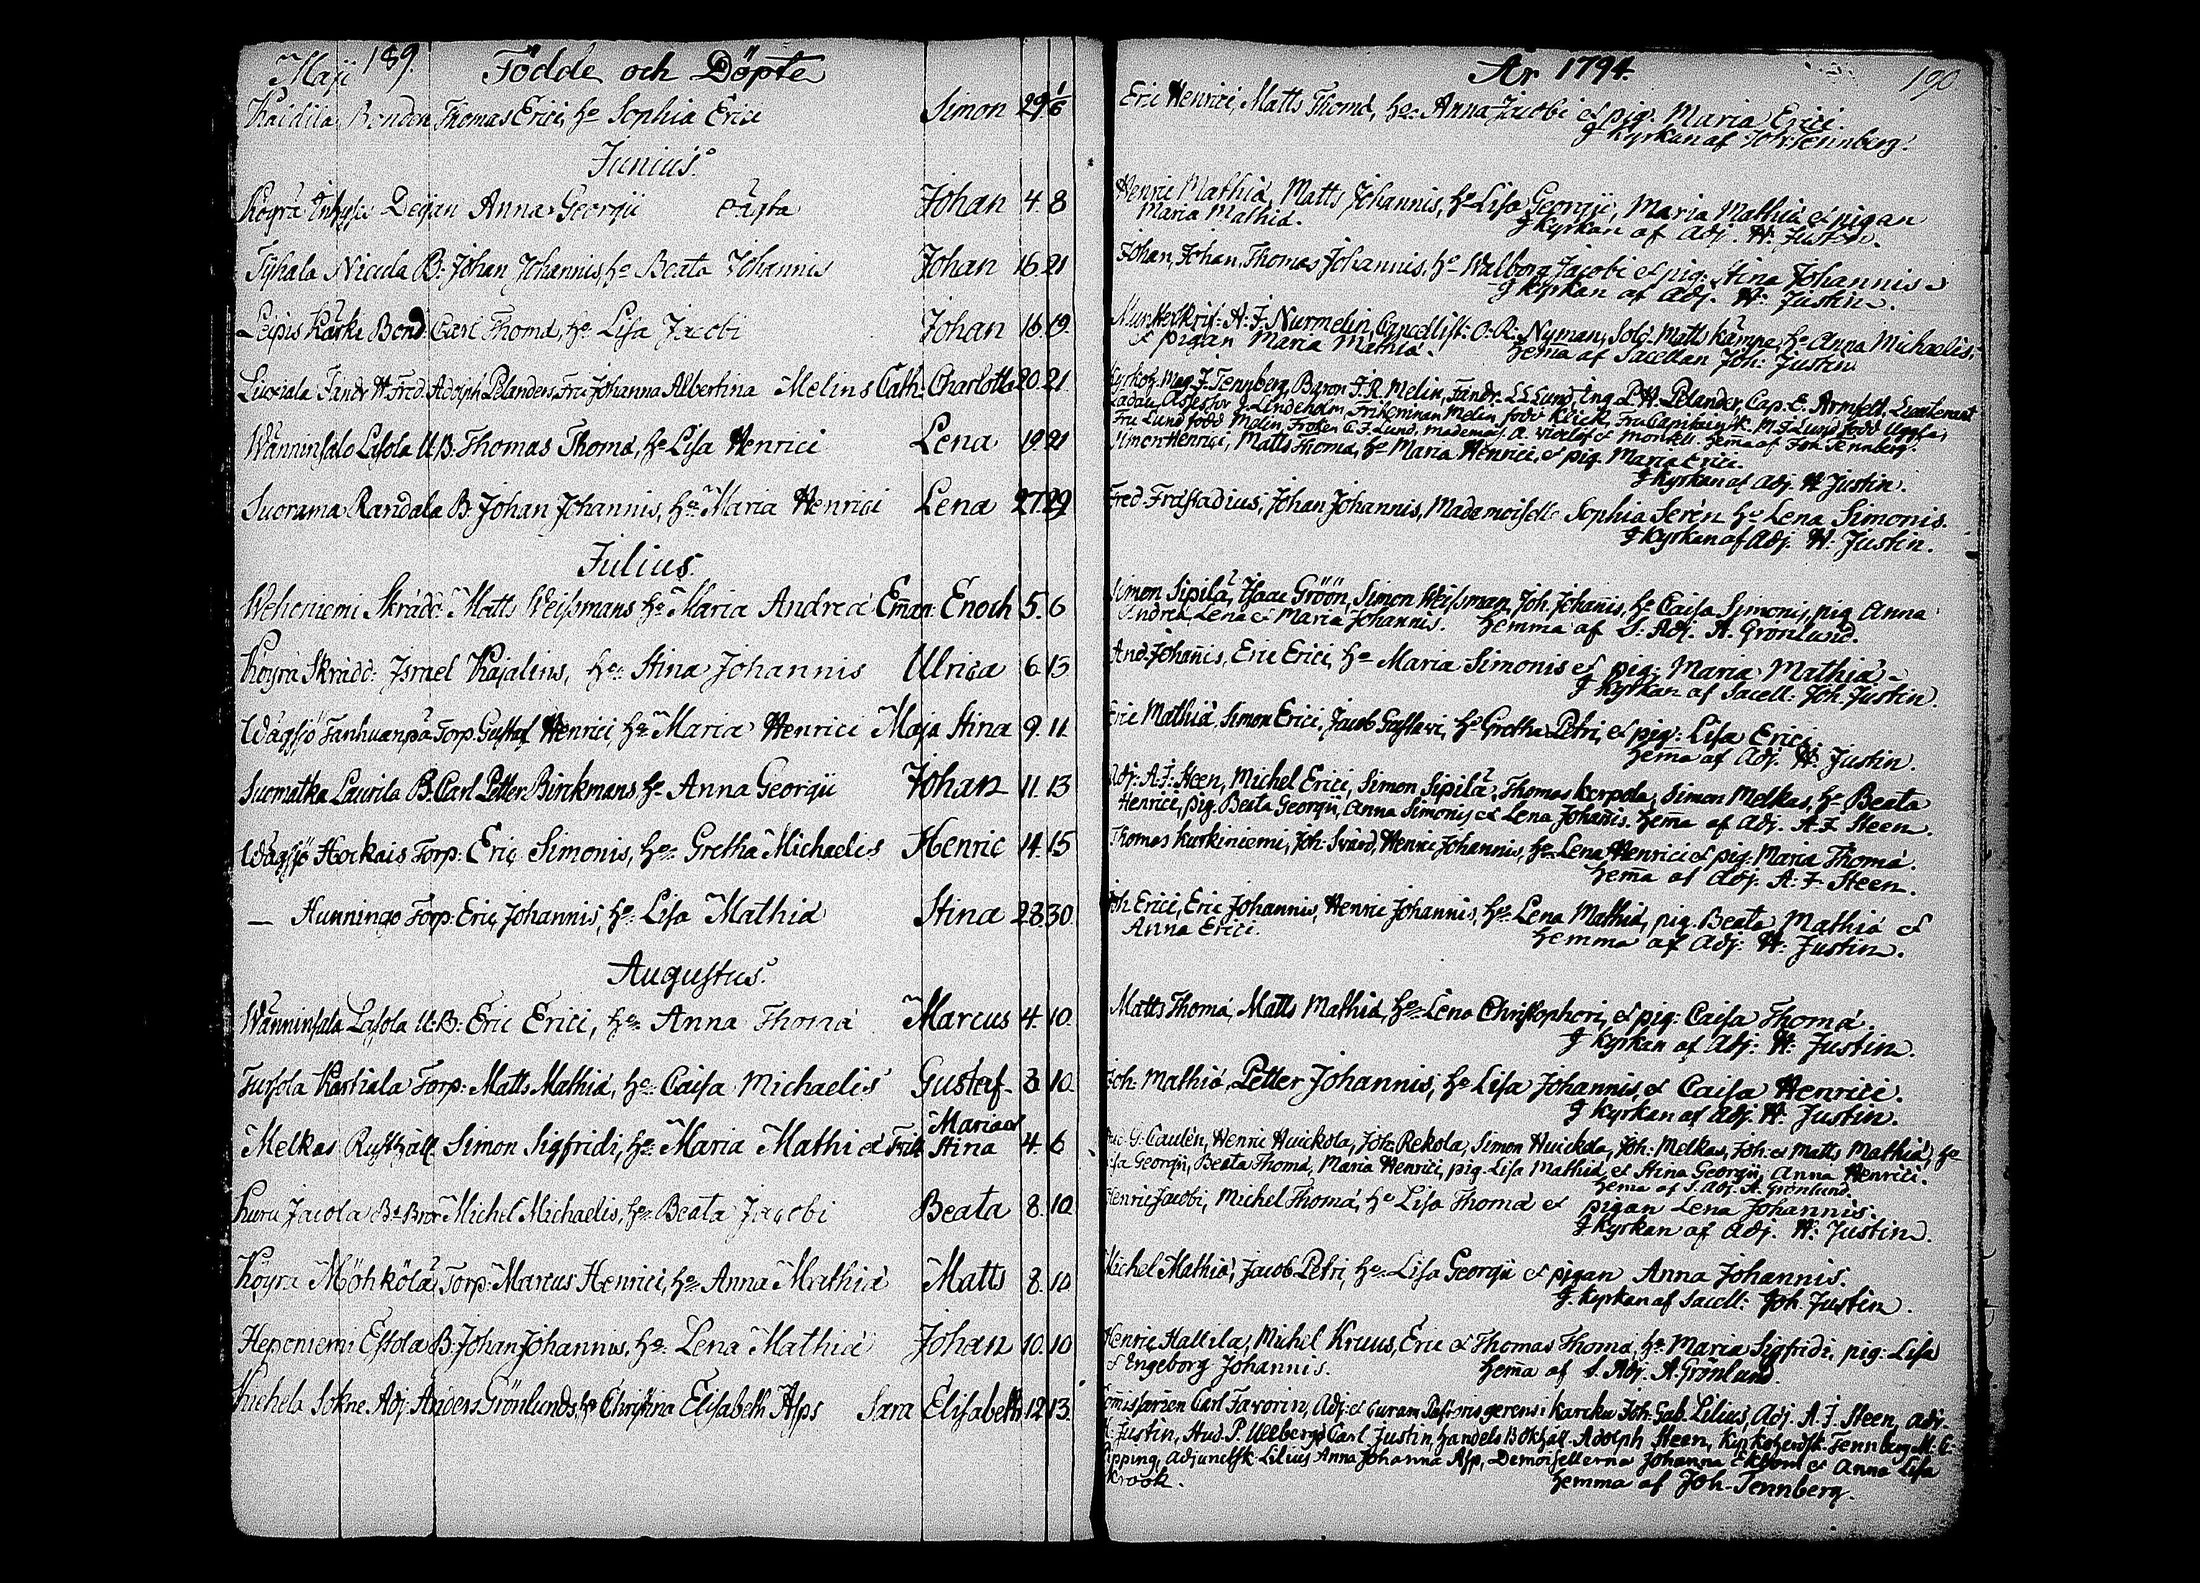 Maji 189. Födde och Döpte
Kaidila Bonden Thomas Erici, hu Sophia Erici Simon 29 1/6
Junius.
Köyrä Inhys: Pigan Anna Georgii oägta Johan 4. 8
Tyhala Nicula B: Johan Johannis, hu Beata Johannis Johan 16. 21
Leipis Kärki Bond: Carl Thomæ, hu Lisa Jacobi Johan 16. 19
Liuxiala Fändr H. Fred: Adolph Pelanders, Fru Johanna Albertina Melins Cath: Charlotta 20. 21
Wänninsalo Lasola U. B: Thomas Thomæ, hu Lisa Henrici Lena 19. 21
Suorama Randala B: Johan Johannis, hu Maria Henrici Lena 27. 29
Julius.
Weheniemi Skrädd: Matts Weissmans hu Maria Andreæ Eman: Enoch 5. 6
Köyrä Skrädd: Israel Kajalins, hu: Stina Johannis Ulrica 6. 13
Wägsjö Tanhuanpä Torp: Gustaf Henrici, hu Maria Henrici Maja Stina 9. 11
Suomatka Laurila B: Carl Petter Birckmans hu Anna Georgii Johan 11. 13
Wägsjö Hockais Torp: Eric Simonis, hu: Gretha Michaelis Henric 14. 15
— Hunninge Torp: Eric Johannis, hu: Lisa Mathiæ Stina 28. 30
Augustus.
Wänninsala Lasola U: B: Eric Erici, hu: Anna Thomæ Marcus 4. 10
Tursola Kastiala Torp: Matts Mathiæ, hu: Caisa Michaelis Gustaf 3. 10
Melkas Rusthåll: Simon Sigfridi, hu: Maria Mathiæ Maria et Stina 4. 6
Kuru Jacola Michel Michaelis, hu: Beata Jacobi Beata 8. 10
Köyrä Möhkölä Torp: Marcus Henrici, hu: Anna Mathiæ Matts 8. 10
Heponiemi Essola B: Johan Johannis, hu: Lena Mathiæ Johan 10. 10
Adj: Anders Grönlunds, hu Christina Elisabeth Asps Sara Elisabeth 12. 13
År 1794. 190
Eric Henrici, Matts Thomæ, hu: Anna Jacobi et pig: Maria Erici.
J kyrkan af Joh: Tennberg.
Henric Mathiæ, Matts Johannis, hu Lisa Georgii, Maria Mathiæ et pigan
Maria Mathiæ. J kyrkan af Adj. H: Justin.
Johan, Johan, Thomas Johannis, hu Walborg Jacobi et pig: Stina Johannis
J kyrkan af Adj. H: Justin.
A. J. Nurmelin, Cancellist: O. R: Nyman, Sold: Matts Kämpe, hu Anna Michaelis,
et pigan Maria Mathiæ. Hema af Sacellan Joh: Justin.
Kyrkoh: Mag: J. Tennberg, Baron F. R. Melin, Fändr: Lund, Ing. Pelander, Cap: C. Armfelt, Lieutenant
Assessor Lindeholm, Friherinnan Melin född Klick, Fru Capitain Lund född Uggla,
Fru Lund född Melin, Fröken C. F. Lund, Mademois. Hema af Joh Tennberg.
Simon Henrici, Matts Thomæ, hu Maria Henrici, et pig. Maria Erici.
J kyrkan af Adj. H Justin.
Fred: Johan Johannis, Mademoiselle Sophia Seren hu Lena Simonis.
J kyrkan af Adj. H: Justin.
Simon Sipilä, Isaac Gröön, Simon Weissman, Joh. Johañis, hu Caisa Simonis, pig Anna
Andreæ, Lena et Maria Johannis. Hemma af S. Adj. A. Grönlund.
And. Johañis, Eric Erici, hu Maria Simonis et pig: Maria Mathiæ
J kyrkan af Sacell: Joh. Justin.
Eric Mathiæ, Simon Erici, Jacob Gustavi, hu Gretha Petri, et pig: Lisa Erici
Hema af Adj. H. Justin.
Adj: A: J: Steen, Michel Erici, Simon Sipilä, Thomas Kerpola, Simon Melkas, hu Beata
Henrici, pig. Beata Georgii, Anna Simonis et Lena Johañis. Hema af Adj. A. J Steen.
Thomas Kurkiniemi, Joh: Svärd, Henric Johannis, hu Lena Henrici et pig: Maria Thomæ.
Hema af Adj. A. J. Steen.
Joh Erici, Eric Johannis, Henric Johannis, hu: Lena Mathiæ, pig. Beata Mathiæ et
Anna Erici. Hemma af Adj: H: Justin.
Matts Thomæ, Matts Mathiæ, hu: Lena Christophori, et pig: Caisa Thomæ.
J kyrkan af Adj. H: Justin.
Joh: Mathiæ, Petter Johannis, hu Lisa Johannis, et Caisa Henrici.
J kyrkan af Adj. H. Justin.
G. Caulén, Henric Huickola, Joh: Rekola, Simon Huickola, Joh: Melkas, Joh: et Matts Mathiæ, hu
Lisa Georgii, Beata Thomæ, Maria Henrici, pig. Lisa Mathiæ et Stina Georgii, Anna Henrici.
Hema af S. Adj. A. Grönlund.
Henric Jacobi, Michel Thomæ, hu Lisa Thomæ et pigan Lena Johannis.
J kyrkan af Adj. H: Justin.
Michel Mathiæ, Jacob Petri, hu: Lisa Georgii et pigan Anna Johannis.
J. kyrkan af Sacell: Joh. Justin.
Henric Hallila, Michel Kruus, Eric et Thomas Thomæ, hu: Maria Sigfridi, pig: Lisa
et Engeborg Johannis. Hema af S. Adj. A. Grönlund.
Carl Favorin, Adj: et curam Pastoris gerens i Karcku Joh: Gab. Lilius, Adj. A. J. Steen, Adj.
H. Justin, Stud. P. Ullberg, Carl Justin, Handels Bokhåll. Adolph Steen, Kyrkoherdsk. Tennberg M. C.
Kipping, Adjunctsk Lilius Anna Johanna Asp, Demoisellerna Johanna Ekbom et Anna Lisa
Krook. Hemma af Joh. Tennberg.